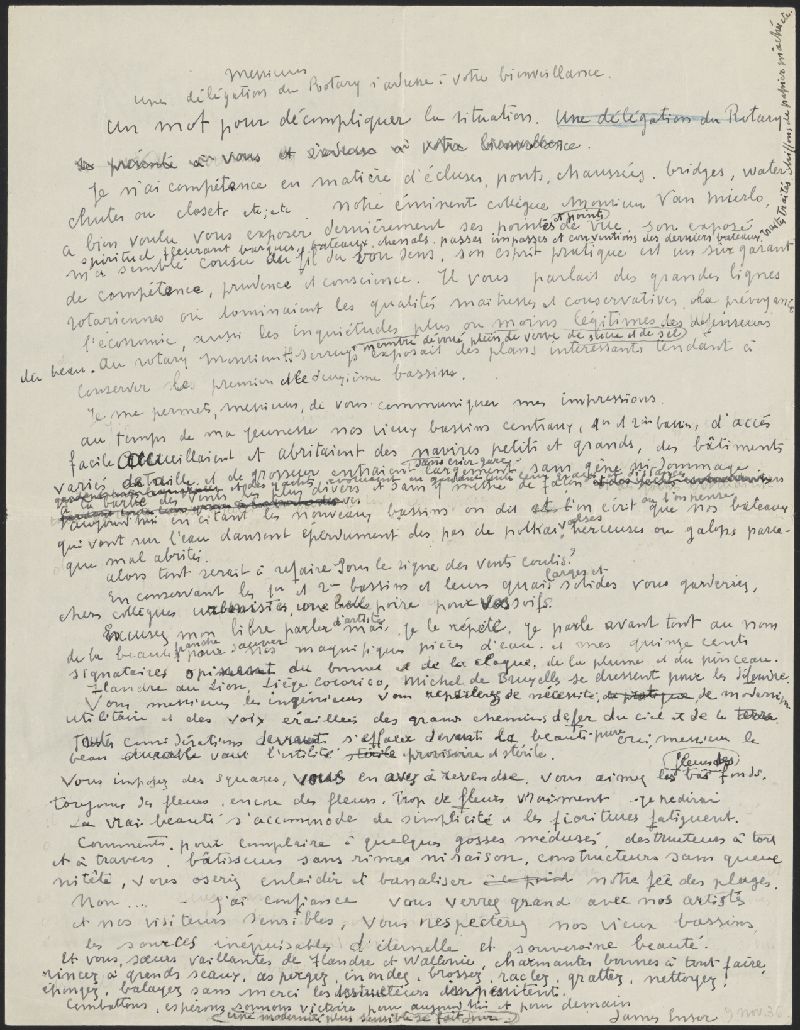 Messieurs
Une délégation du Rotary s'adresse à votre bienveillance.
Un mot pour décompliquer la situation. Une délégation du Rotary
se présente à vous et s'adresse à votre bienveillance.
Je n'ai compétence en matière d'écluses, ponts, chaussées. bridges, water
chutes ou closets etc, etc notre éminent collègue monsieur Van Mierlo,
a bien voulu vous exposer dernièrement ses pointes et points de vue, son exposé
spirituel fleurant barques, bateaux, chenals, passes impasses et conventions des derniers bateaux
m'a semblé cousu du fil du bon sens, son esprit pratique est un sûr garant
de compétence, prudence et conscience. Il vous parlait des grandes lignes
rotariennes où dominaient les qualités maitresses et conservatives, la prévoyance
l'économie, aussi les inquiétudes plus ou moins légitimes des défenseurs
du beau. Au rotary monsieur Serruys membre de vous, plein de verve de et de sel exposait des plans intéressants tendant à
conserver les premier et le deuxième bassins.
Je me permets, messieurs, de vous communiquer mes impressions.
au temps de ma jeunesse nos vieux bassins centraux, 1er et 2me bassin, d'accès
facile accueillaient et abritaient des navires petits et grands, des bâtiments
variés de taille et de grosseur entraient largement sans crier gare, sans gêne ni dommage
à la barbe des vents les plus divers et sans
aujourd'hui en citant les nouveaux bassins on dit et l'on écrit ou l'on pense que nos bateaux
qui vont sur l'eau dansent éperdument des pas de polkas, valses berceuses ou galops parce-
que mal abrités.
alors tout serait à refaire sous le signe des vents coulis?
En conservant les 1er et 2me bassins et leurs quais larges et solides vous garderiez,
chers collègues urbanistes, une belle poire pour vos soifs.
Excusez mon libre parler d'artiste mais, je le répète, je parle avant tout au nom
de la beauté franche pour sauver nos magnifiques pièces d'eau. et mes quinze cents
signataires opinent du bonnet et de la claque, de la plume et du pinceau.
Flandre au Lion, Liège Cocorico, Michel de Bruxelles se dressent pour les défendre.
Vous, messieurs les ingénieurs vous repaissez de nécessité, de pratique, de modernism
utilitaire et des voix éraillées des grands chemins de fer du ciel et de la terre
Toutes considérations devraient s'effacer devant la beauté pure oui, messieurs le
beau durable vaut l'utilité stérile provisoire et stérile.
Vous imposez des squares, vous en avez à revendre, vous aimez les fleurs des bas fonds.
toujours des fleurs, encore des fleurs. Trop de fleurs vraiment. je redirai
La vrai beauté s'accommode de simplicité et les fioritures fatiguent.
Comment. pour complaire à quelques gosses méduses, destructeurs à tort
et à travers, bâtisseurs sans rimes ni raison, constructeurs sans queue
ni tête, vous oseriez enlaidir et banaliser notre fée des plages.
Non.... j'ai confiance vous verrez grand avec nos artistes
et nos visiteurs sensibles, Vous respecterez nos vieux bassins,
les sources inépuisables d'éternelle et souveraine beauté.
Et vous, sœurs vaillantes de Flandre et Wallonie, charmantes bonnes à tout faire,
rincez à grands seaux, aspergez, inondez, brossez, raclez, grattez, nettoyez,
épongez, balayez sans merci les destructeurs impénitents.
Combattons, espérons, sonnons victoire pour aujourd'hui et pour demain
une modernité plus sensible se fait jour
James Ensor 9 nov 36.
chiffons de papier mâchés.